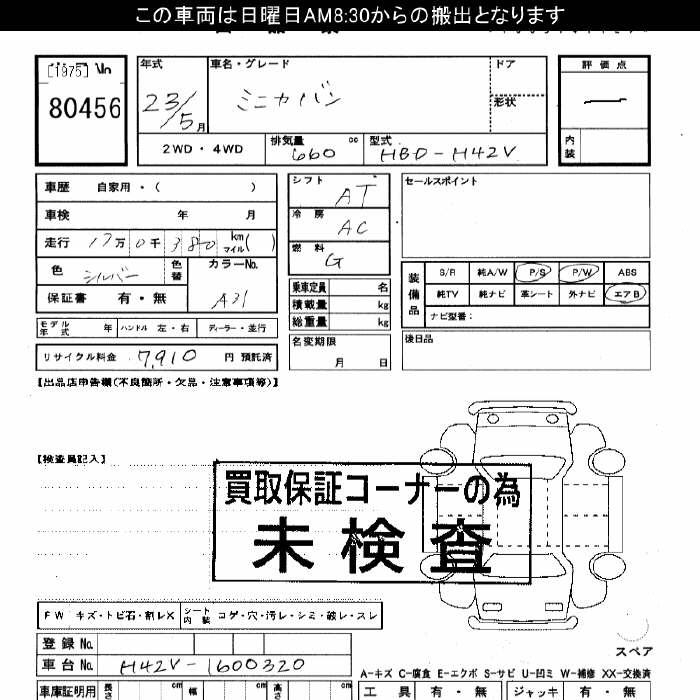 この車両は日曜日AM8:30からの搬出となります
[1975] No
80456
年式
車名・グレード
ドア
評価点
23/5月
ミニカバン
形状
ー
2WD・4WD
排気量 cc
660
型式
HBD-H42V
内装
車歴 自家用・( )
シフト
AT
セールスポイント
車検 年 月
冷房
AC
走行 17万 0千 380 km マイル( )
燃料
G
色
シルバー
色替
カラーNo.
A31
装備品
S/R 純A/W P/S P/W ABS
純TV 純ナビ 革シート 外ナビ エアB
ナビ型番:
保証書 有・無
乗車定員 名
積載量 kg
総重量 kg
モデル年式 年 ハンドル 左・右 ディーラー・並行
名変期限
月 日
後日品
リサイクル料金 7,910 円 預託済
【出品店申告欄(不良箇所・欠品・注意事項等)】
【検査員記入】
買取保証コーナーの為
未検査
FW キズ・トビ石・割レX
シート内装 コゲ・穴・汚レ・シミ・破レ・スレ
登録No.
スペア
車台No. H42V-1600320
A-キズ C-腐食 E-エクボ S-サビ U-凹ミ W-補修 XX-交換済
車庫証明用 長さ cm 幅 cm 高さ cm
工具 有・無 ジャッキ 有・無